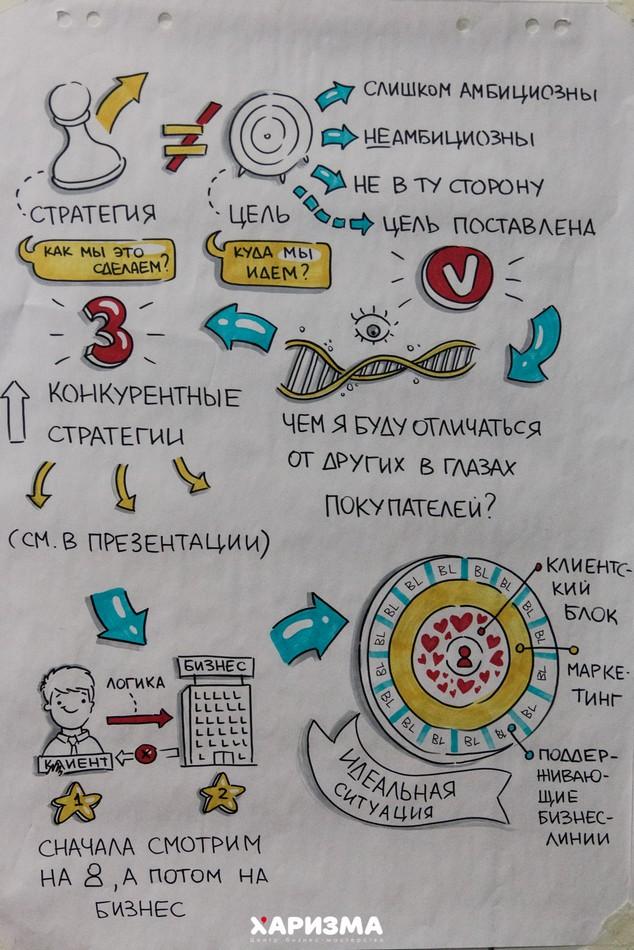 СЛИШКОМ АМБИЦИОЗНЫ
НЕАМБИЦИОЗНЫ
НЕ В ТУ СТОРОНУ
ЦЕЛЬ ПОСТАВЛЕНА
СТРАТЕГИЯ
ЦЕЛЬ
≠
КАК МЫ ЭТО
СДЕЛАЕМ?
КУДА МЫ
ИДЕМ?
V
3
КОНКУРЕНТНЫЕ
СТРАТЕГИИ
(СМ. В ПРЕЗЕНТАЦИИ)
ЧЕМ Я БУДУ ОТЛИЧАТЬСЯ
ОТ ДРУГИХ В ГЛАЗАХ
ПОКУПАТЕЛЕЙ?
ЛОГИКА
БИЗНЕС
КЛИЕНТ
x
1
2
СНАЧАЛА СМОТРИМ
НА , А ПОТОМ НА
БИЗНЕС
BL BL BL BL BL BL BL BL BL BL BL BL BL BL BL BL
КЛИЕНТС-
КИЙ
БЛОК
МАРКЕ-
ТИНГ
ПОДДЕР-
ЖИВАЮ-
ЩИЕ
БИЗНЕС-
ЛИНИИ
ИДЕАЛЬНАЯ
СИТУАЦИЯ
ХАРИЗМА
Центр бизнес-мастерства